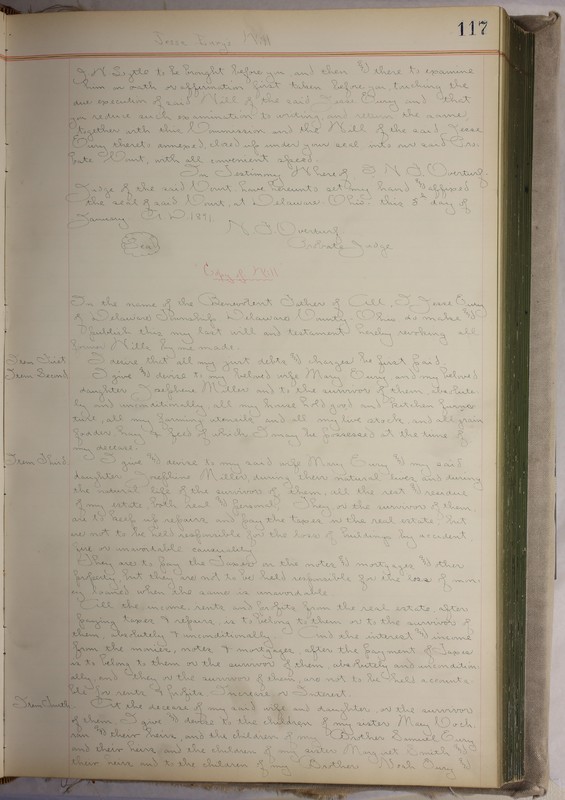 117
Jesse Will
to be brought before you and then & there to examine
him on oath or affirmation first taken before you, touching the
due execution of said Will of the said Jesse and that
you reduce such examination to writing, and return the same,
together with this Commission and the Will of the said Jesse
thereto annexed, closed up under your seal into our said Pro-
bate Court, with all convenient speed.
In Testimony Whereof I, N. F. Overturf,
Judge of the said Court have hereunto set my hand & affixed
the seal of said Court, at Delaware Ohio. this day of
January A D 1891.
N. F. Overturf
Seal
Probate Judge
Copy of Will
In the name of the Benevolent Father of All, I, Jesse
of Delaware Township Delaware County, Ohio do make &
Publish this my last will and testament hereby revoking all
former Wills by me made.
Item First
I desire that all my just debts & charges be first paid.
Item Second
I give & devise to my beloved wife Mary and my beloved
daughter Josephine Miller and to the survivor of them absolute-
ly and unconditionally, all my house hold good and kitchen furni-
ture, all my farming utensils and all my live stock, and all grain
fodder hay & feed of which I may be possessed at the time of
my decease.
Item Third
I give & devise to my said wife Mary & my said
daughter Josephine Miller, during their natural lives and during
the natural life of the survivor of them, all the rest & residue
of my estate both real & personal. They or the survivor of them,
are to keep up repairs, and pay the taxes on the real estate, but
are not to be held responsible for the loss of buildings by accident
fire or unavoidable casuality.
They are to pay the Taxes on the notes & mortgages & other
property, but they are not to be held responsible for the loss of mon-
ey loaned when the same is unavoidable.
All the income, rents and profits from the real estate after
paying taxes & repairs, is to belong to them or to the survivor of
them, absolutely & unconditionally. And the interest & income
from the monies, notes & mortgages, after the payment of Taxes
is to belong to them or the survivor of them, absolutely and uncondition-
ally, and they or the survivor of them, are not to be held accounta-
ble for rents & profits, Increase, or Interest.
Item
At the decease of my said wife and daughter, or the survivor
of them, I give & devise to the children of my sister Mary
& their heirs, and the children of my Brother Samuel
and their heirs, and the children of my sister Margaret Smith &
their heirs and to the children of my Brother &